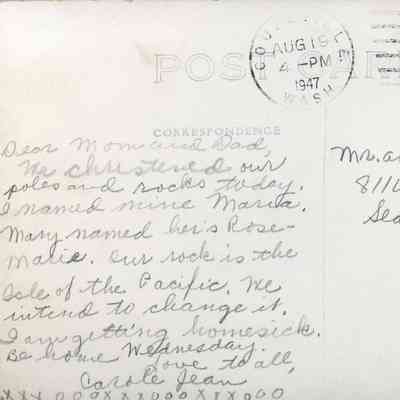 POST CAR
AUG 19
4 - PM
1947
WASH
CORRESPONDENCE
Dear Mom and Dad,
We christened our
poles and rocks today.
I named mine Maria.
Mary named her's Rose-
Marie. Our rock is the
Isle of the Pacific. We
intend to change it.
I am getting homesick.
Be home Wednesday.
Love to all,
Carole Jean
xxx ooo xxx ooo xxx ooo
Mr. a
811
Sea